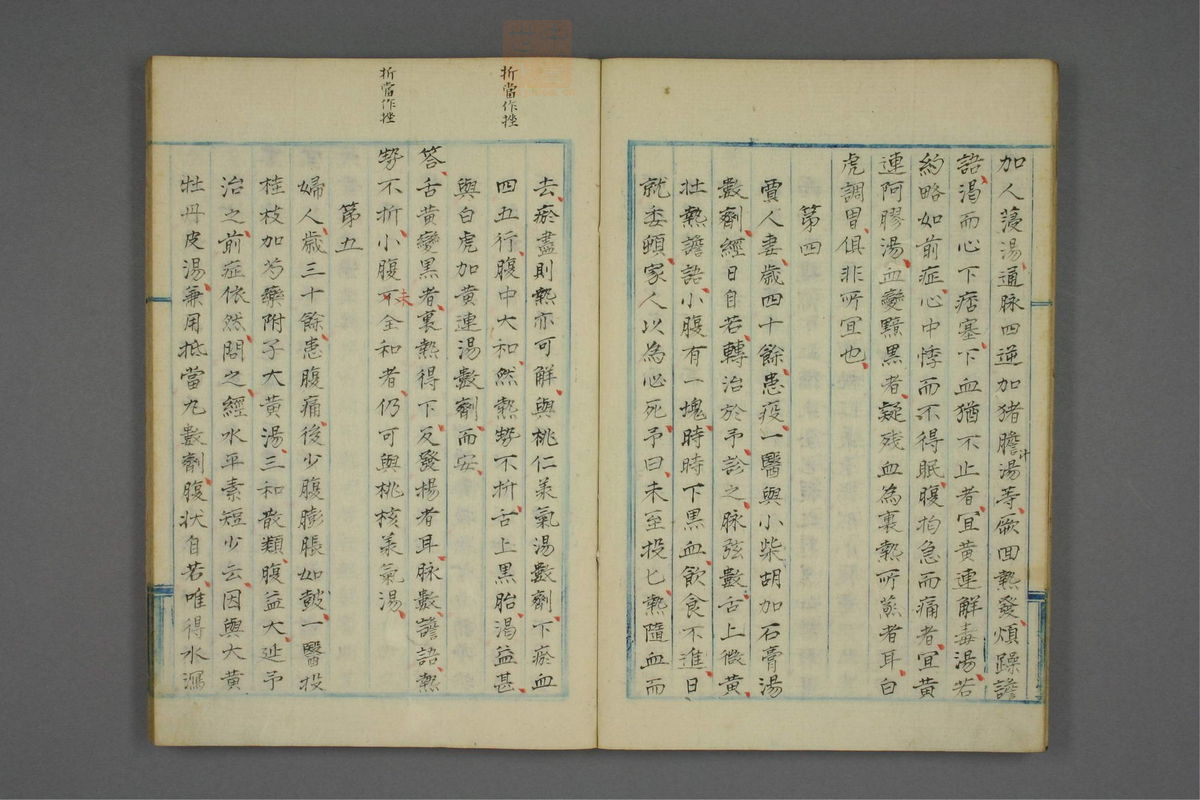 加人蓡湯、通脉四逆加猪膽汁湯等、厥回熱發、煩躁譫
語、渴而心下痞塞、下血猶不止者、冝黄連解毒湯、若
約略如前症、心中悸而不得眠、腹拘急而痛者、冝黄
連阿膠湯、血變黯黒者、疑残血為裏熱所蒸者耳、白
虎調胃、俱非所冝也、
第四
賈人妻、歲四十餘、患疫一醫與小柴胡加石膏湯
數劑、經日自若、轉治於予、診之、脉弦數、舌上微黄
壮熱譫語、小腹有一塊、時時下黒血、飲食不進、日
就委頓、家人以為必死、予曰未至投匕、熱隨血而
折當作挫
去、瘀盡則熱亦可解、與桃仁羕氣湯數劑、下瘀血
四五行、腹中大和、然熱㔟不折、舌上黒胎渴益甚、
與白虎加黄連湯數劑、而安、
折當作挫
答、舌黄變黒者、裏熱得下、反發揚者耳、脉數、譫語、熱
㔟不折、小腹未全和者、仍可與桃核羕氣湯、
第五
婦人、歲三十餘、患腹痛、後少腹膨脹如皷一醫投
桂枝加芍藥附子大黄湯、三和散類、腹益大、延予
治之、前症依然問之、經水平素短少云、因與大黄
牡丹皮湯、兼用抵當丸數劑、腹状自若、唯得水瀉